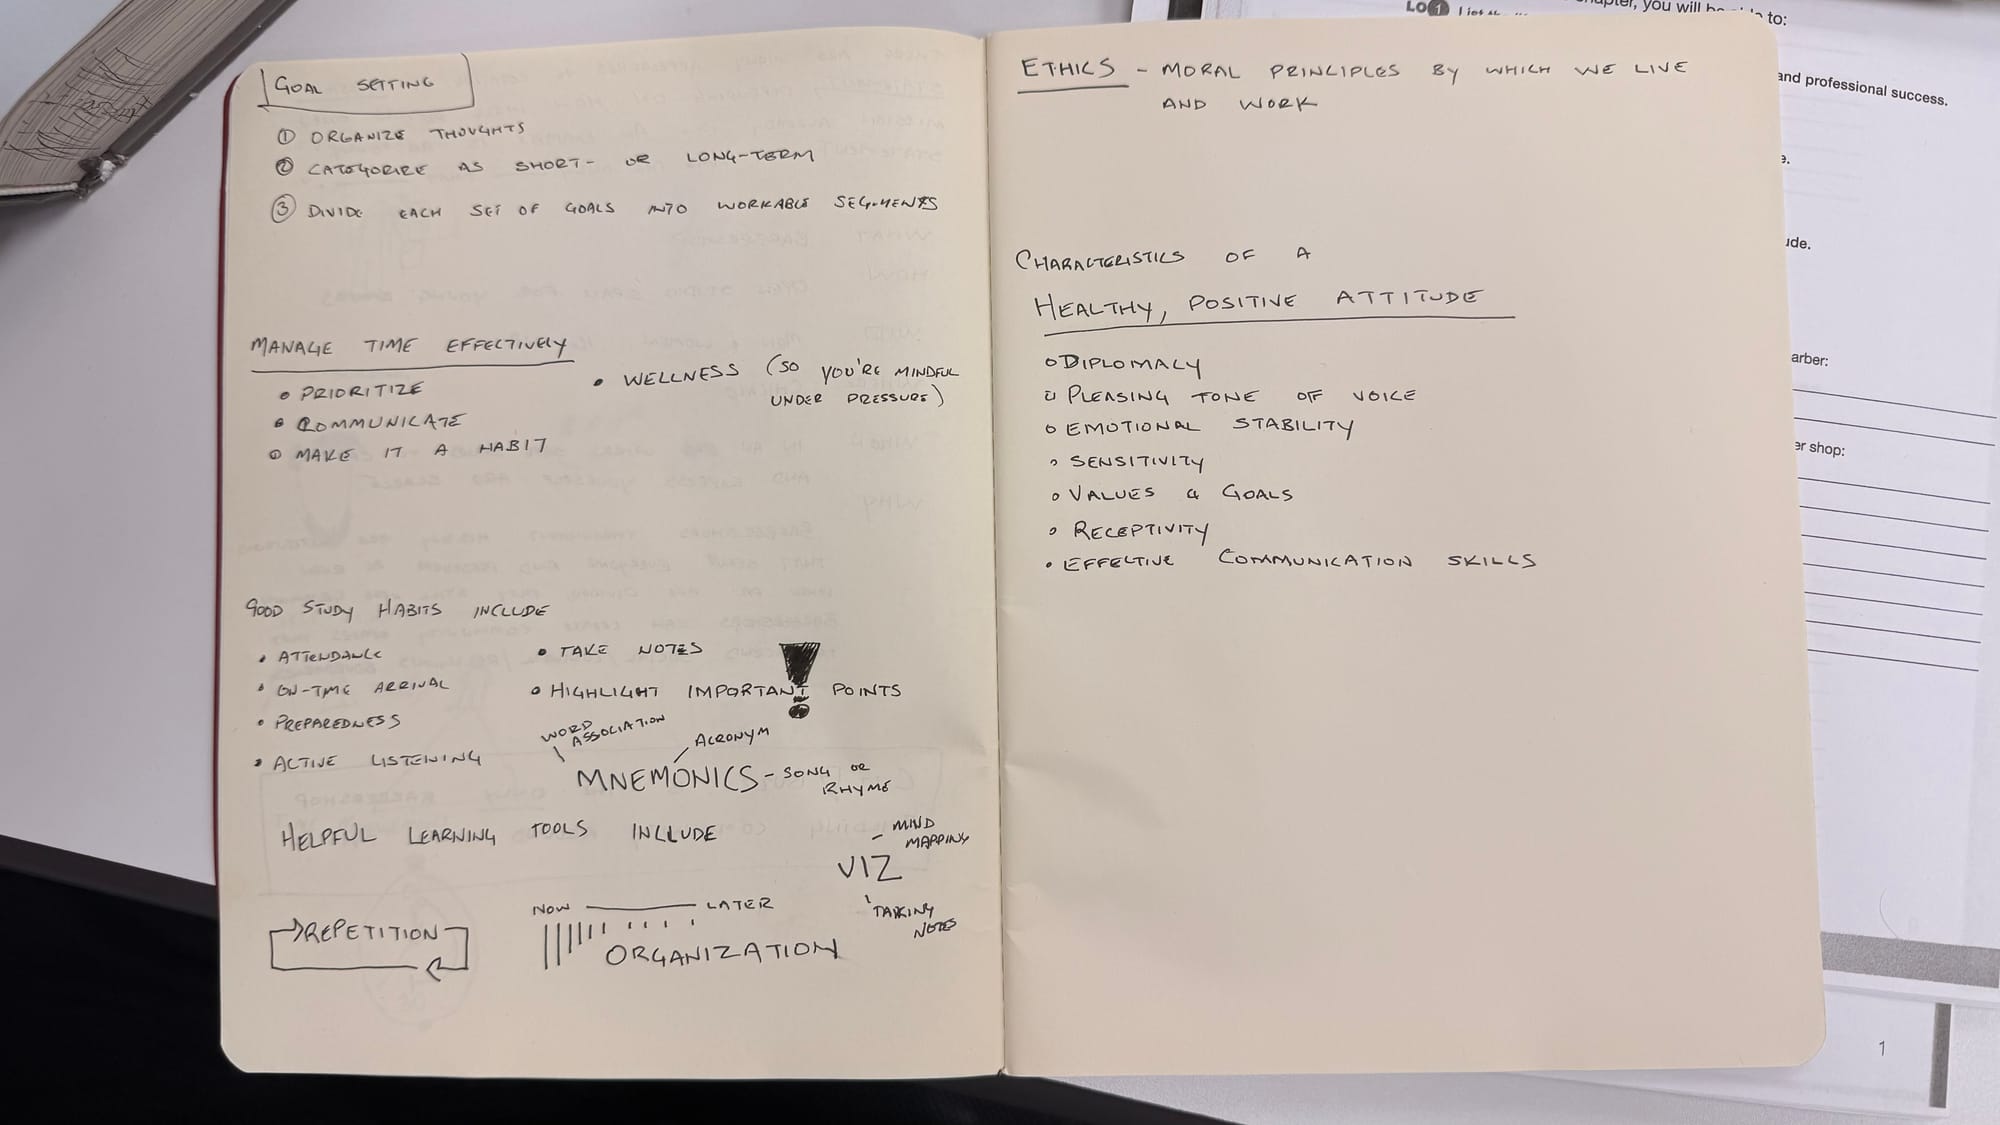 GOAL SETTING
① ORGANIZE THOUGHTS
② CATEGORIZE AS SHORT- OR LONG-TERM
③ DIVIDE EACH SET OF GOALS INTO WORKABLE SEGMENTS
MANAGE TIME EFFECTIVELY
• PRIORITIZE
• COMMUNICATE
• MAKE IT A HABIT
• WELLNESS (SO YOU'RE MINDFUL
UNDER PRESSURE)
GOOD STUDY HABITS INCLUDE
• ATTENDANCE
• ON-TIME ARRIVAL
• PREPAREDNESS
• ACTIVE LISTENING
• TAKE NOTES
• HIGHLIGHT IMPORTANT POINTS
!
WORD
ASSOCIATION
ACRONYM
MNEMONICS - SONG OR
RHYME
HELPFUL LEARNING TOOLS INCLUDE
MIND
MAPPING
VIZ
TAKING
NOTES
REPETITION
NOW LATER
ORGANIZATION
ETHICS - MORAL PRINCIPLES BY WHICH WE LIVE
AND WORK
CHARACTERISTICS OF A
HEALTHY, POSITIVE ATTITUDE
• DIPLOMACY
• PLEASING TONE OF VOICE
• EMOTIONAL STABILITY
• SENSITIVITY
• VALUES & GOALS
• RECEPTIVITY
• EFFECTIVE COMMUNICATION SKILLS
you will to:
LO 1
and professional success.
arber:
shop:
1